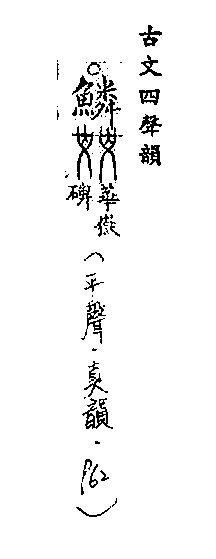 古文四聲韻
鱗
華嶽
碑
（平聲．真韻．P62）